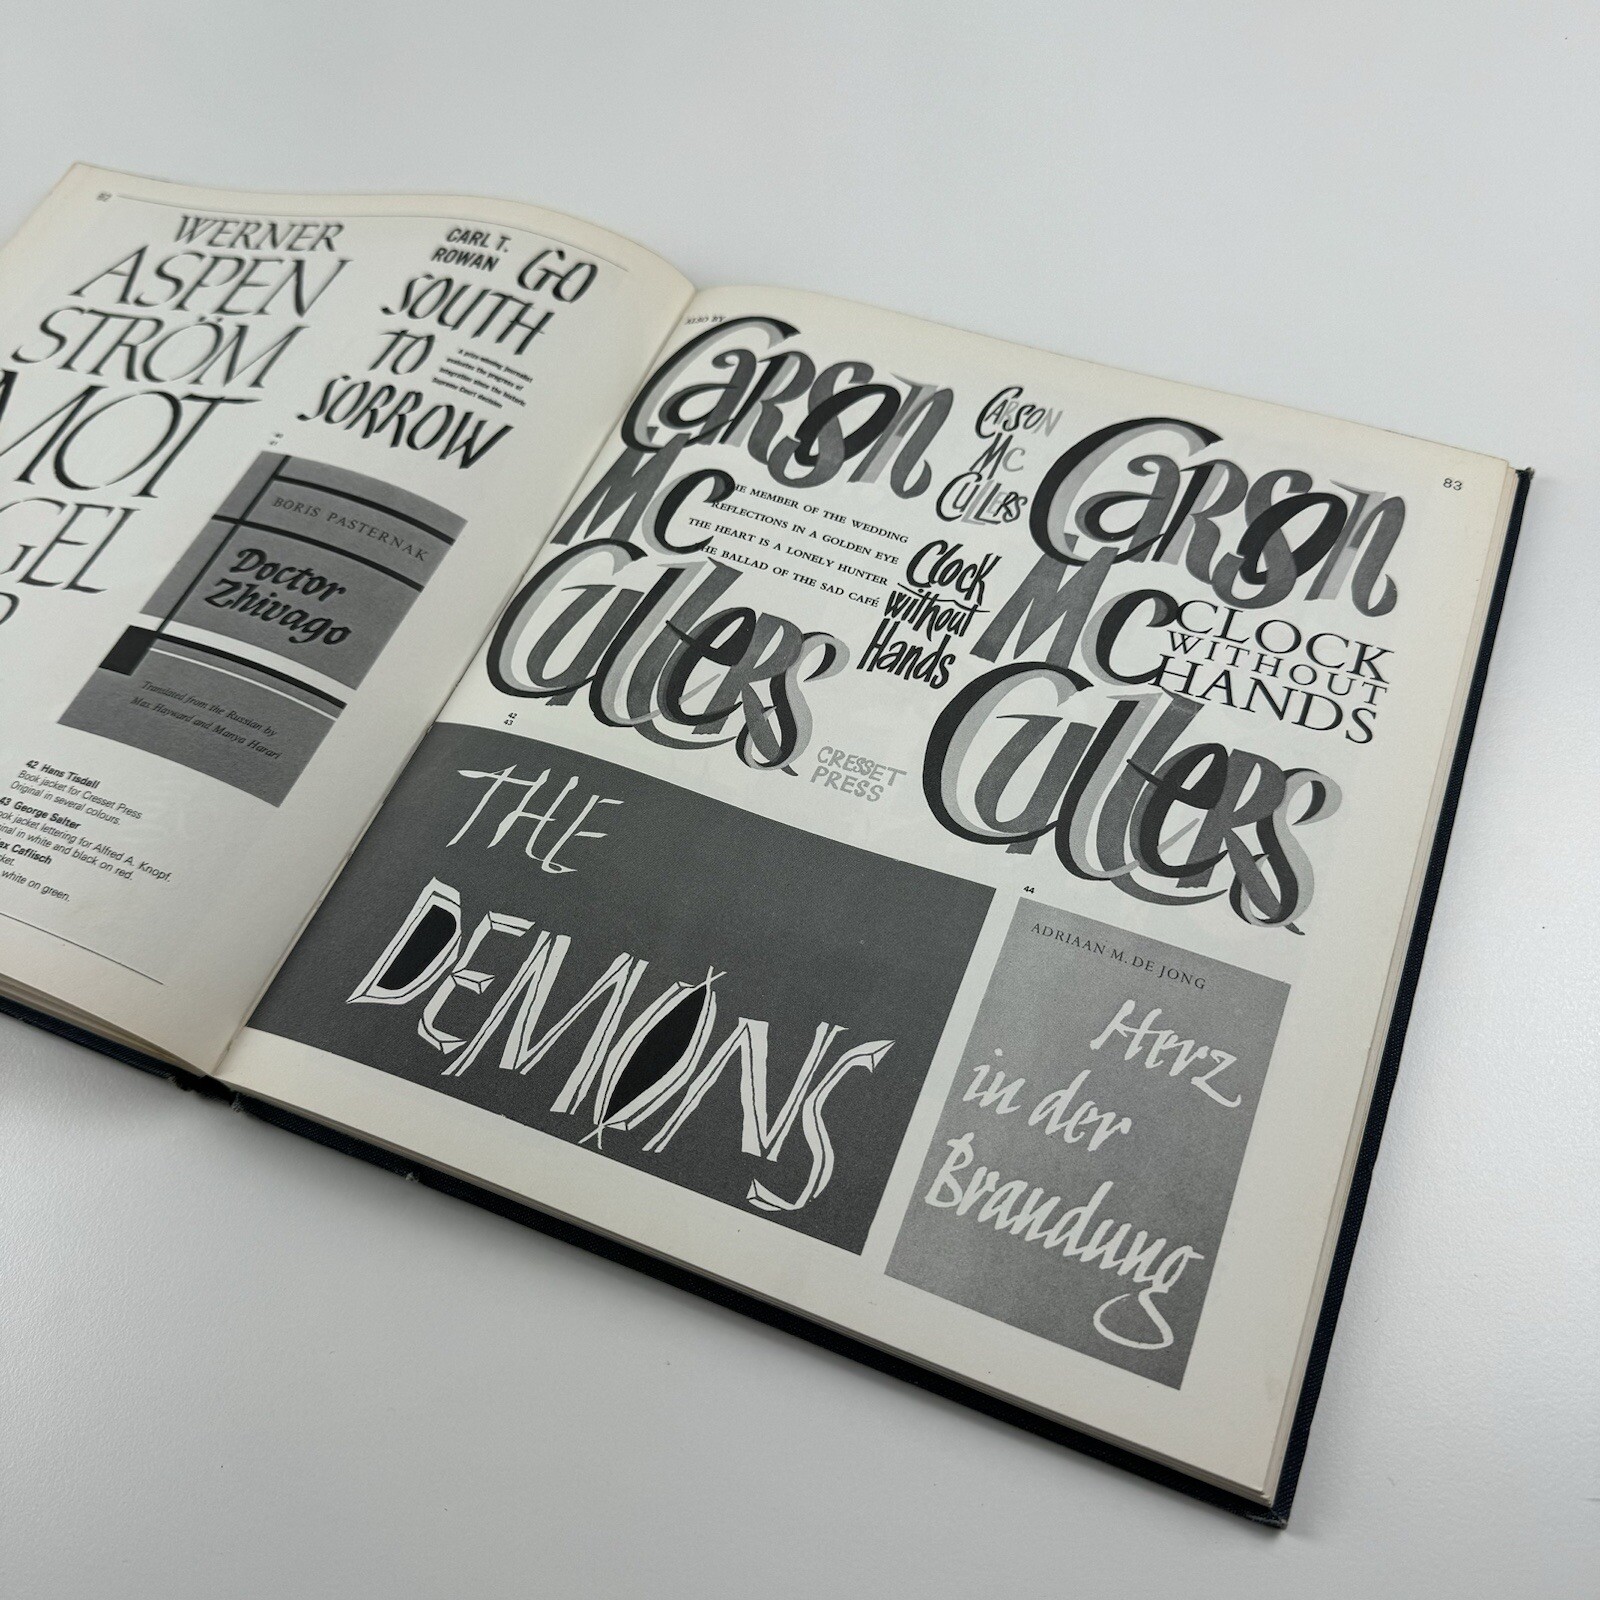 82
WERNER
ASPEN
STRÖM
MOT
GEL
CARL T.
ROWAN
GO
SOUTH
TO
SORROW
A prize-winning journalist
evaluates the progress of
integration since the historic
Supreme Court decision
BORIS PASTERNAK
Doctor
Zhivago
Translated from the Russian by
Max Hayward and Manya Harari
42 Hans Tisdall
Book jacket for Cresset Press
Original in several colours.
43 George Salter
ook jacket lettering for Alfred A. Knopf.
inal in white and black on red.
ax Caflisch
ket.
white on green.
83
ALSO BY
CARSON
MC
CULLERS
HE MEMBER OF THE WEDDING
REFLECTIONS IN A GOLDEN EYE
THE HEART IS A LONELY HUNTER
HE BALLAD OF THE SAD CAFÉ
CARSON
MC
CULLERS
Clock
without
Hands
CRESSET
PRESS
CARSON
MC
CULLERS
CLOCK
WITHOUT
HANDS
42
43
THE
DEMONS
44
ADRIAAN M. DE JONG
Herz
in der
Brandung